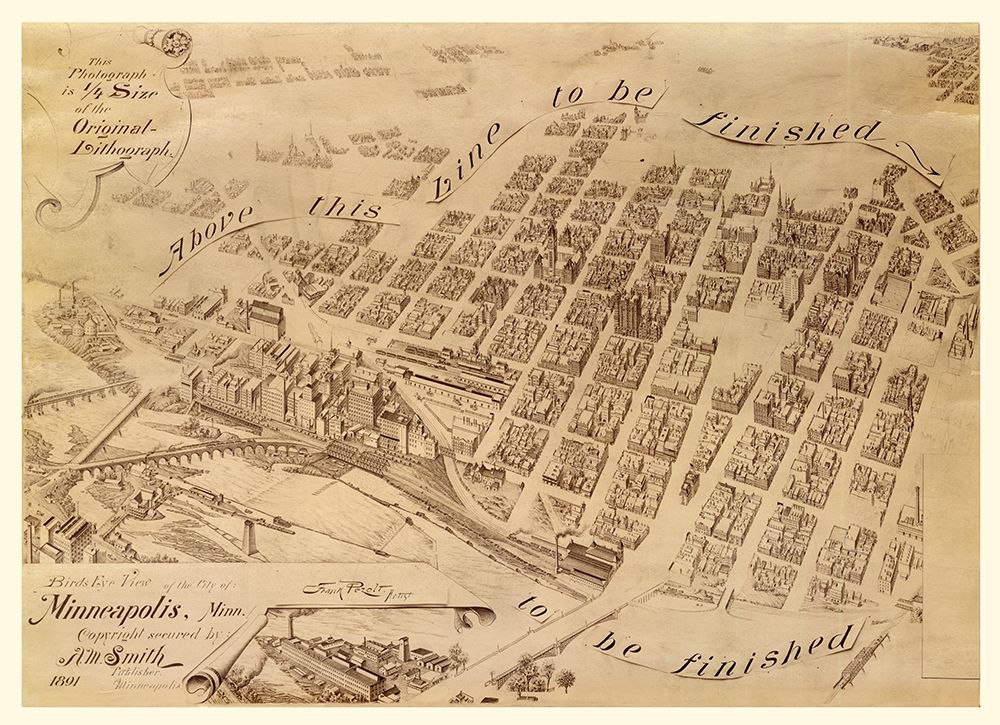 This
Photograph
is 1/4 Size
of the
Original-
Lithograph.
Above this Line to be finished
to be finished
Birds Eye View of the City of:
Minneapolis, Minn.
Copyright secured by:
A.M. Smith
Publisher.
1891 Minneapolis.
Frank Pezolt Artist